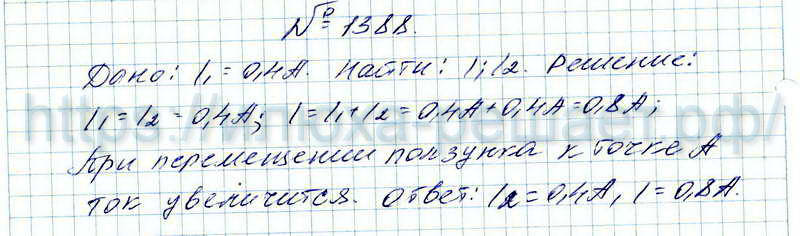 № 1388.
Дано: I₁ = 0,4А. Найти: I; I₂. Решение:
I₁ = I₂ = 0,4А; I = I₁ + I₂ = 0,4А + 0,4А = 0,8А;
При перемещении ползунка к точке А
ток увеличится. Ответ: I₂ = 0,4А, I = 0,8А.